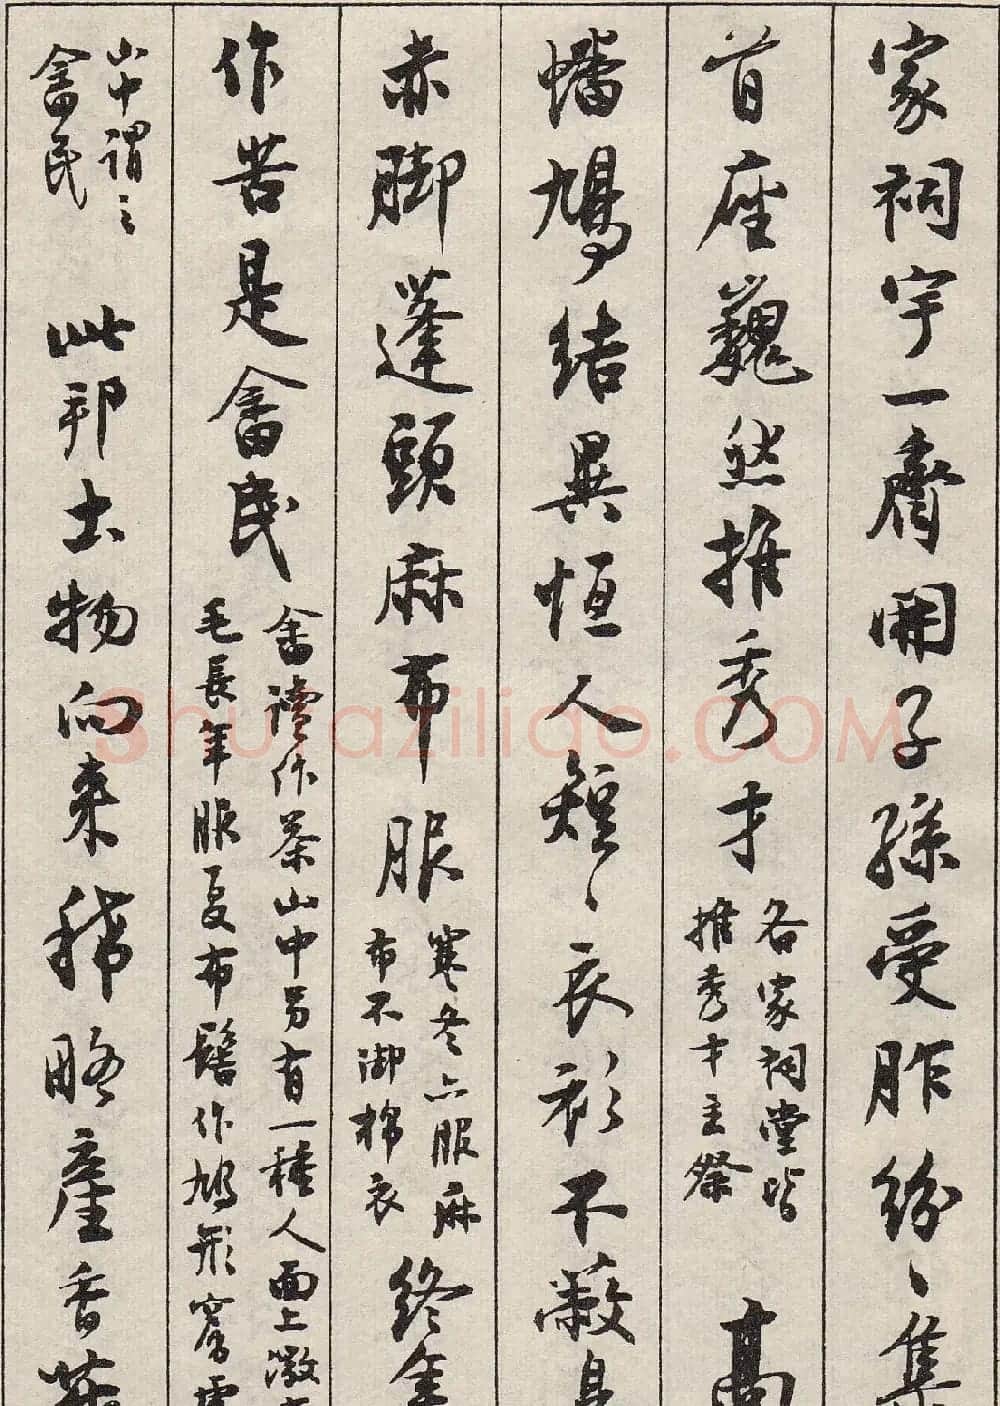 家祠宇一齊開子孫受胙紛〻集
首座巍然推秀才
各家祠堂皆
推秀才主祭
高
蟠鳩結異恒人短〻衣衫不蔽身
赤脚蓬頭麻布服
寒冬亦服麻
布不御棉衣
終年
作苦是畲民
畲讀作茶山中另有一種人面上微
毛長年服夏布髻作鳩形窩
山中謂之
畲民
此邦土物向来稀略產香
shufaziliao.COM